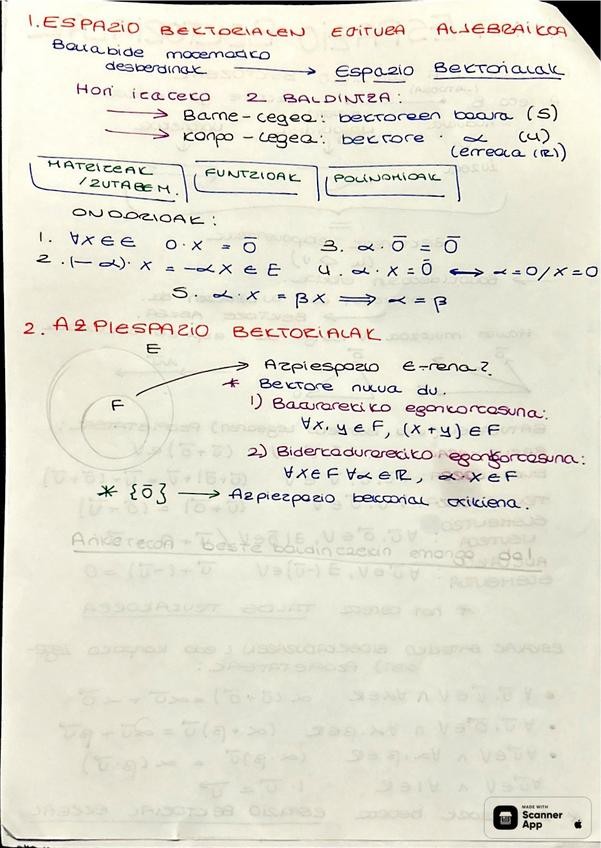 1. ESPAZIO BEKTORIALEN EGITURA ALJEBRAIKOA
Baliabide matematiko
desberdinak → Espazio Bektorialak
Hori izateko 2 BALDINTZA:
→ Barne-legea: bektoreen batura (S)
→ Kanpo-legea: bektore · α (U)
(erreala (R))
MATRIZEAK
/ZUTABEM. FUNTZIOAK POLINOMIOAK
ONDORIOAK:
1. ∀x∈E 0·x = 0̄ 3. α·0̄ = 0̄
2. (-α)·x = -αx ∈ E 4. α·x = 0̄ ⟷ α=0/x=0
5. α·x = βx ⟹ α = β
2. AZPIESPAZIO BEKTORIALAK
E
F
Azpiespazio E-rena?
* Bektore nulua du.
1) Baturarekiko egonkortasuna:
∀x, y ∈ F, (x+y) ∈ F
2) Biderkadurarekiko egonkortasuna:
∀x∈F ∀α∈R, α·x∈F
* {0̄} → Azpiezpazio bektorial txikiena.
Ariketetan beste baldintzekin emango da!
MADE WITH
Scanner
App